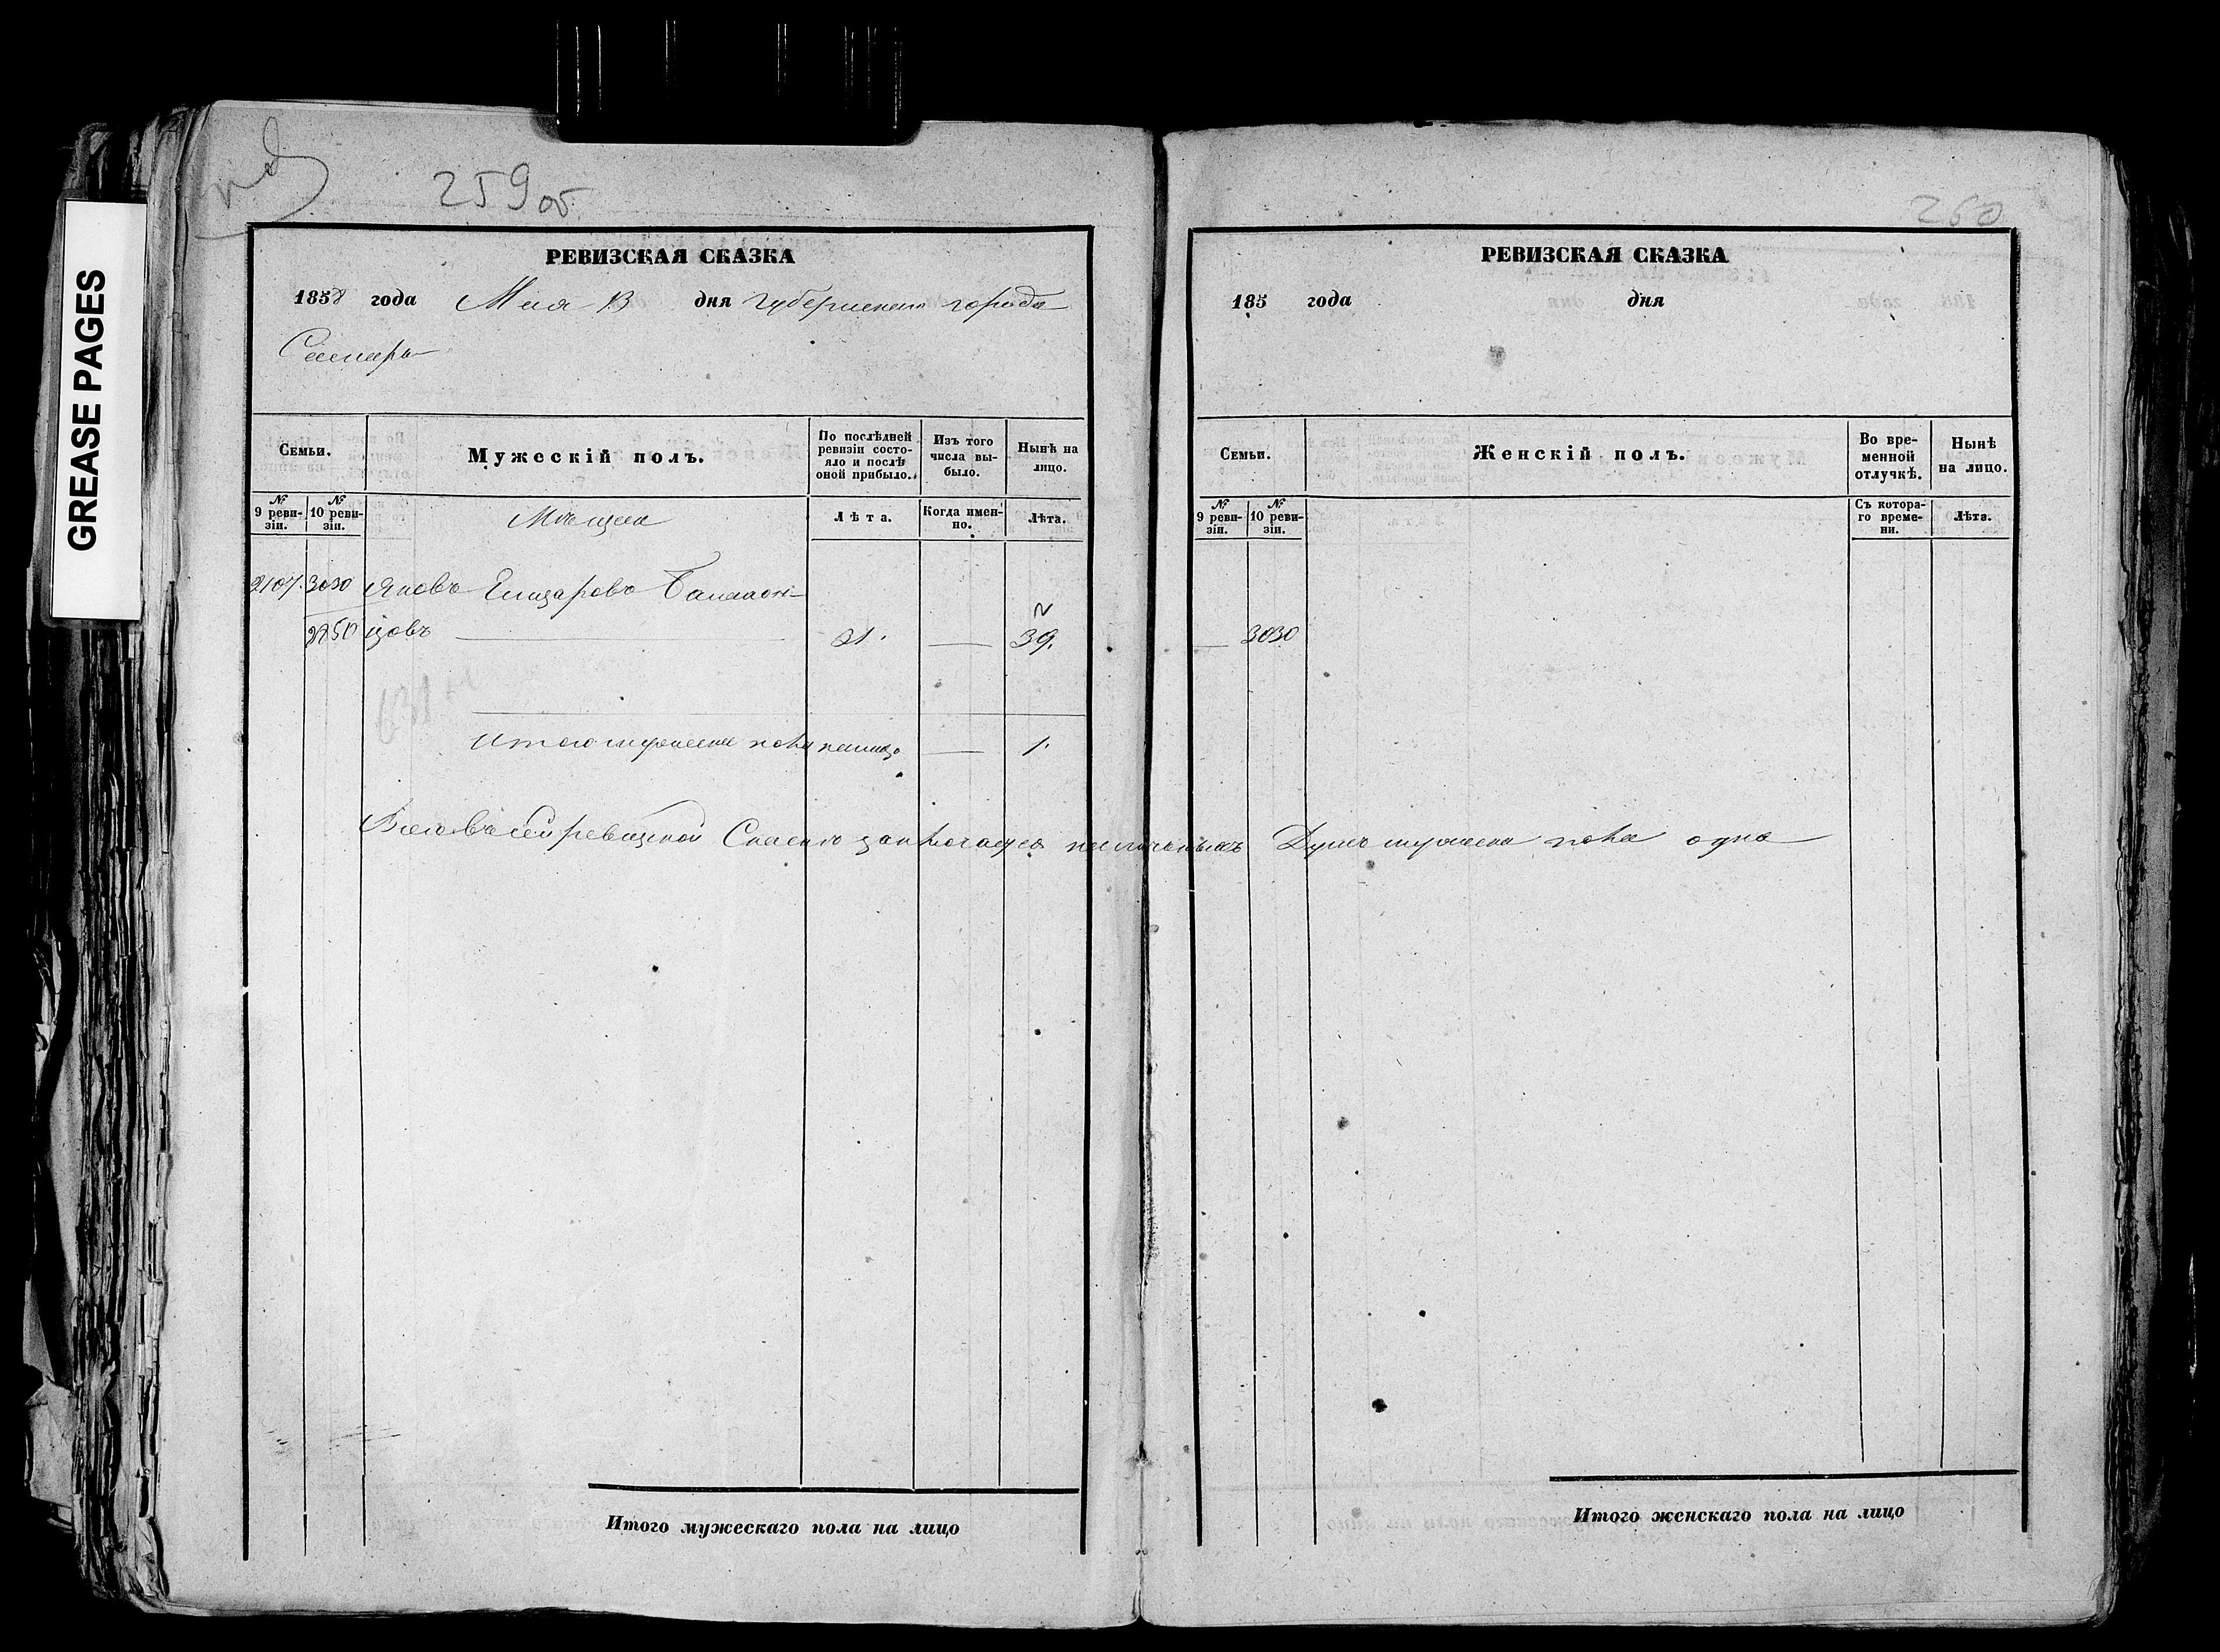 GREASE PAGES
259 об
РЕВИЗСКАЯ СКАЗКА
1858 года Мая 13 дня Губернскаго города
Самары
Семьи.
Мужескій полъ.
По послѣдней ревизіи состояло и послѣ оной прибыло.
Изъ того числа выбыло.
Нынѣ на лицо.
№ 9 ревизіи.
№ 10 ревизіи.
Мѣщане
Лѣта.
Когда именно.
Лѣта.
2107. 3030 Яковъ
2250 цовъ 21. — 39.
Итого мужеска пола налицо — 1.
Всего въ сей ревизской Сказкѣ заключается наличныхъ Душъ мужеска пола одна
Итого мужескаго пола на лицо
260
РЕВИЗСКАЯ СКАЗКА
185 года дня
Семьи.
Женскій полъ.
Во временной отлучкѣ.
Нынѣ на лицо.
№ 9 ревизіи.
№ 10 ревизіи.
Съ котораго времени.
Лѣта.
— 3030
Итого женскаго пола на лицо